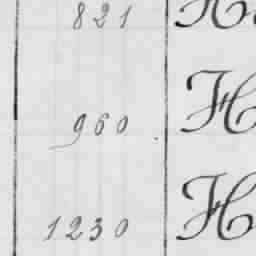 821 H
960 . H
1230 H